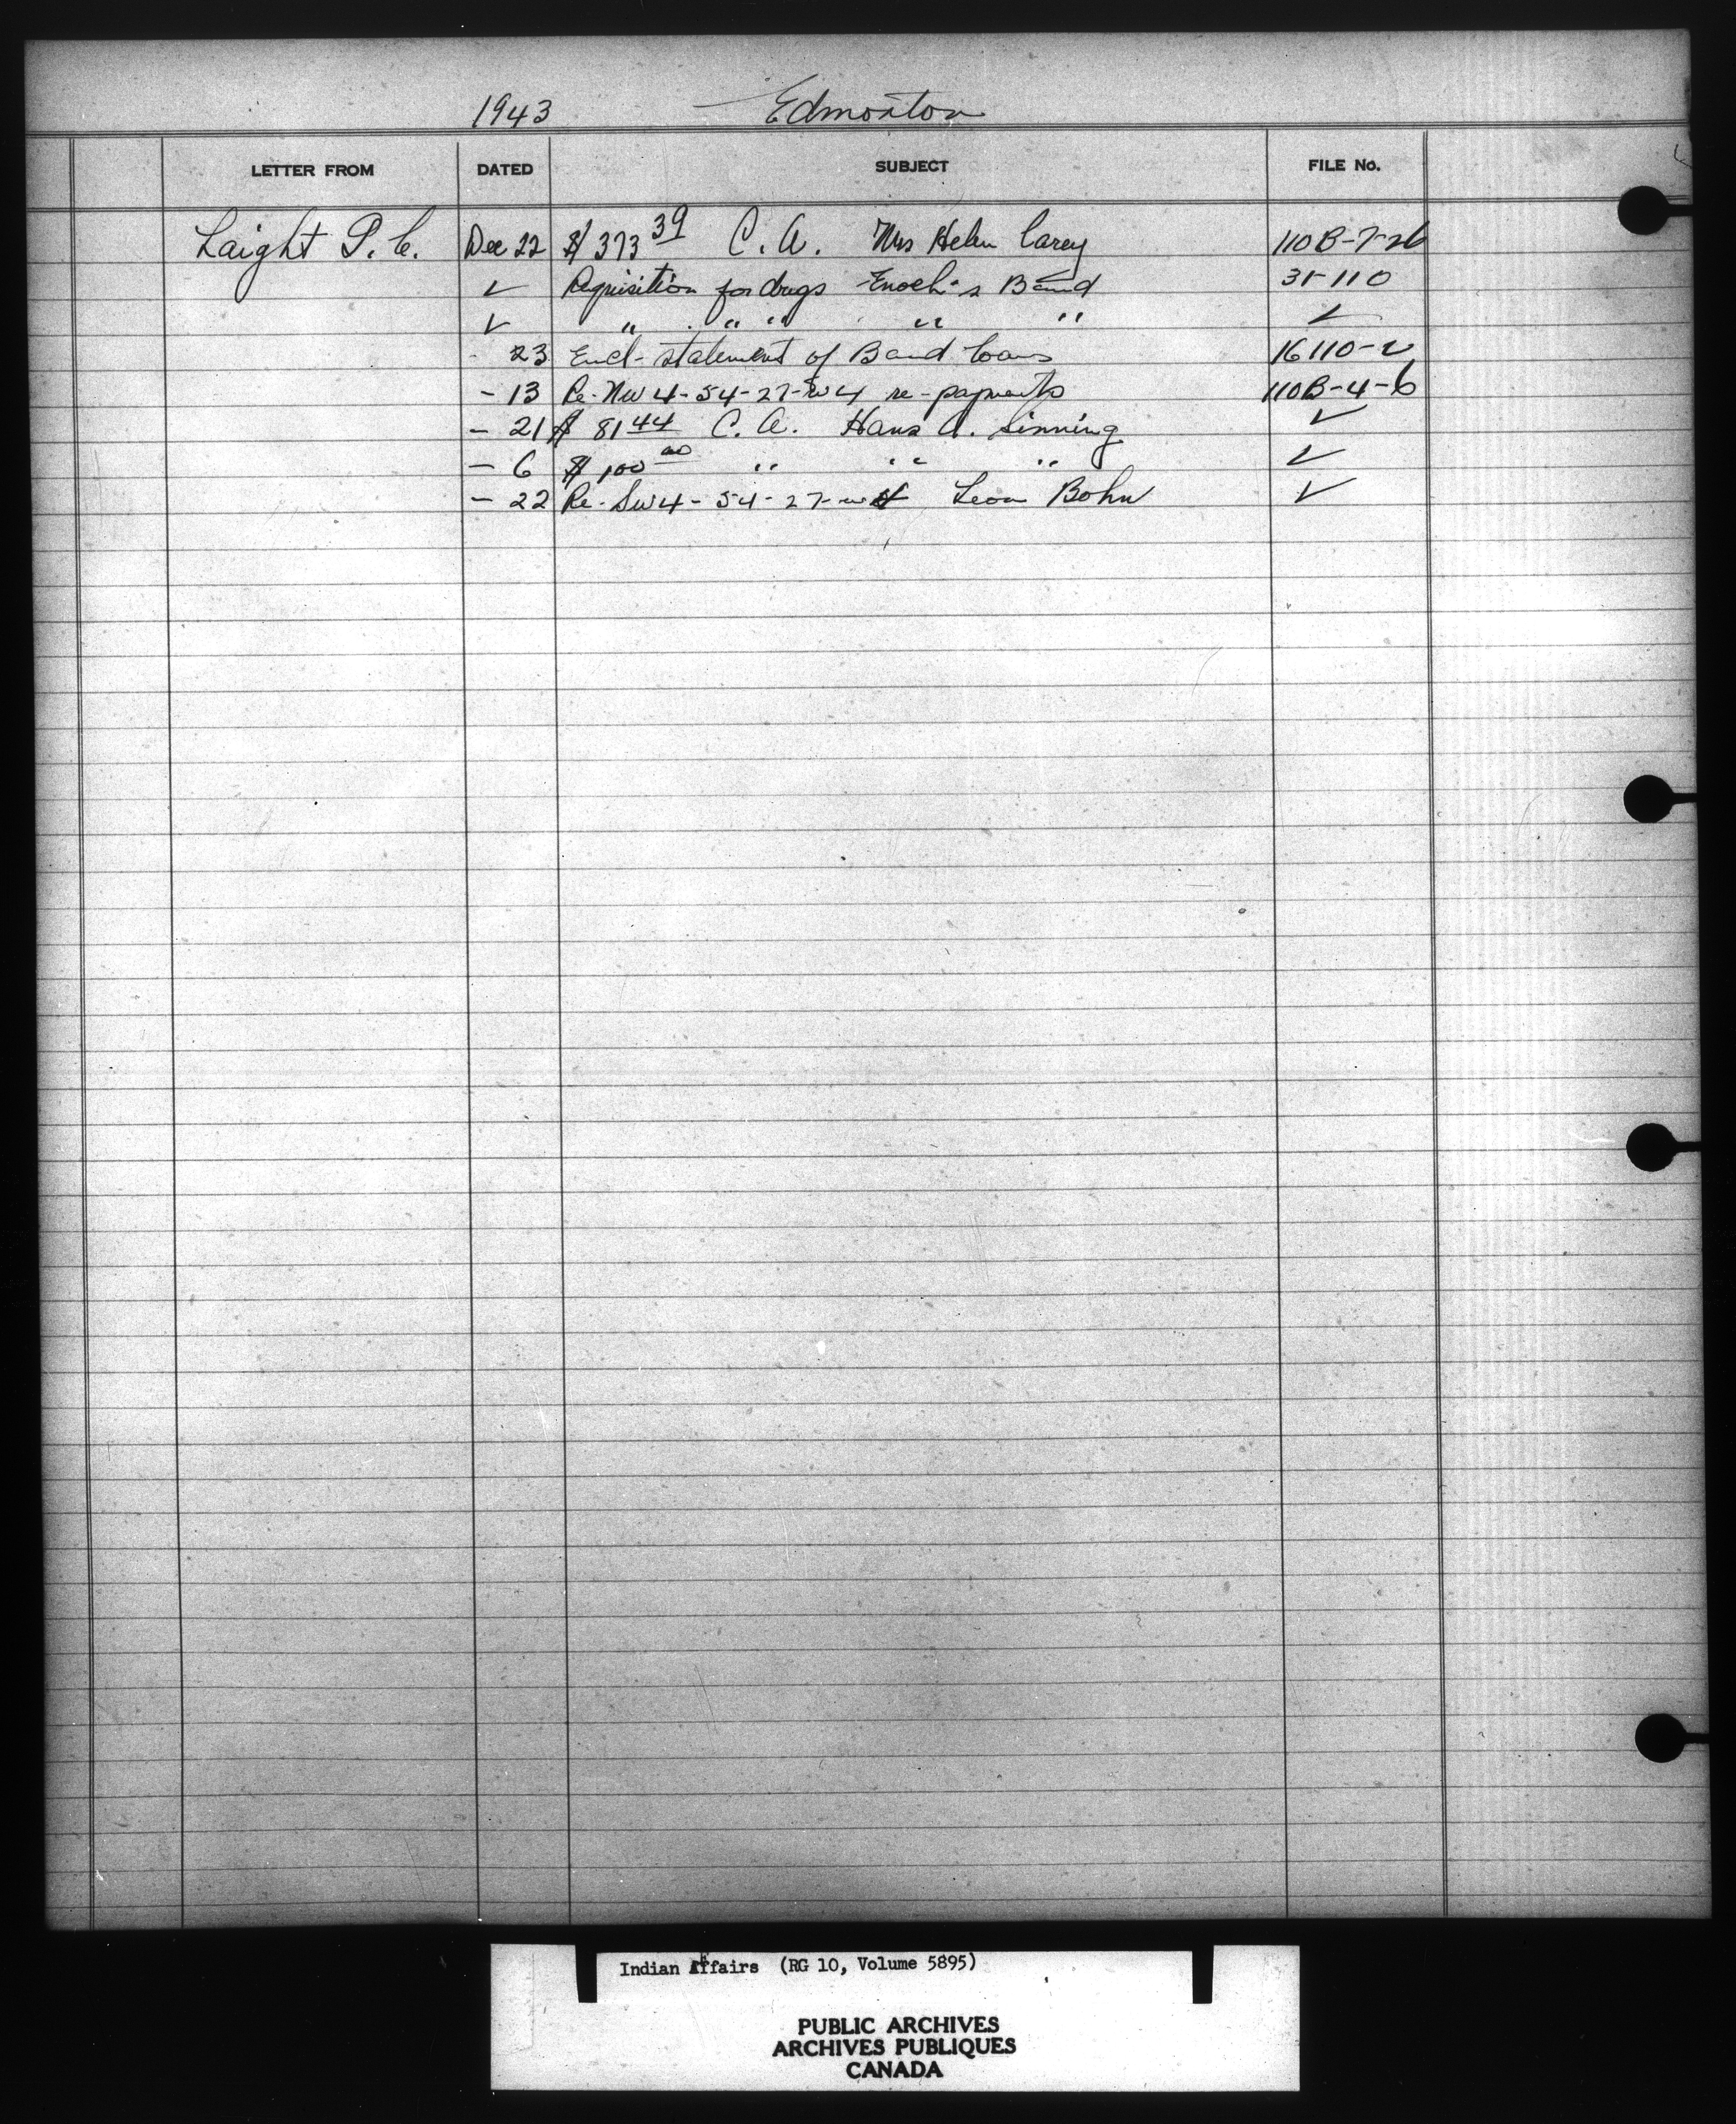 1943 Edmonton
LETTER FROM DATED SUBJECT FILE No.
Laight P. C. Dec 22 $373 39 C. A. Mrs Helen Carey 110B-7-26
✓ Requisition for drugs Enoch's Band 35-110
✓ " " " " " ✓
23 Encl- statement of Band loans 16110-2
- 13 Re- NW 4-54-27-W4 re-payments 110B-4-6
- 21 $ 81 44 C. A. Hans A. Sinning ✓
- 6 $ 100 00 " " " ✓
- 22 Re- SW 4-54-27-W4 Leon Bohn ✓
Indian Affairs (RG 10, Volume 5895)
PUBLIC ARCHIVES
ARCHIVES PUBLIQUES
CANADA